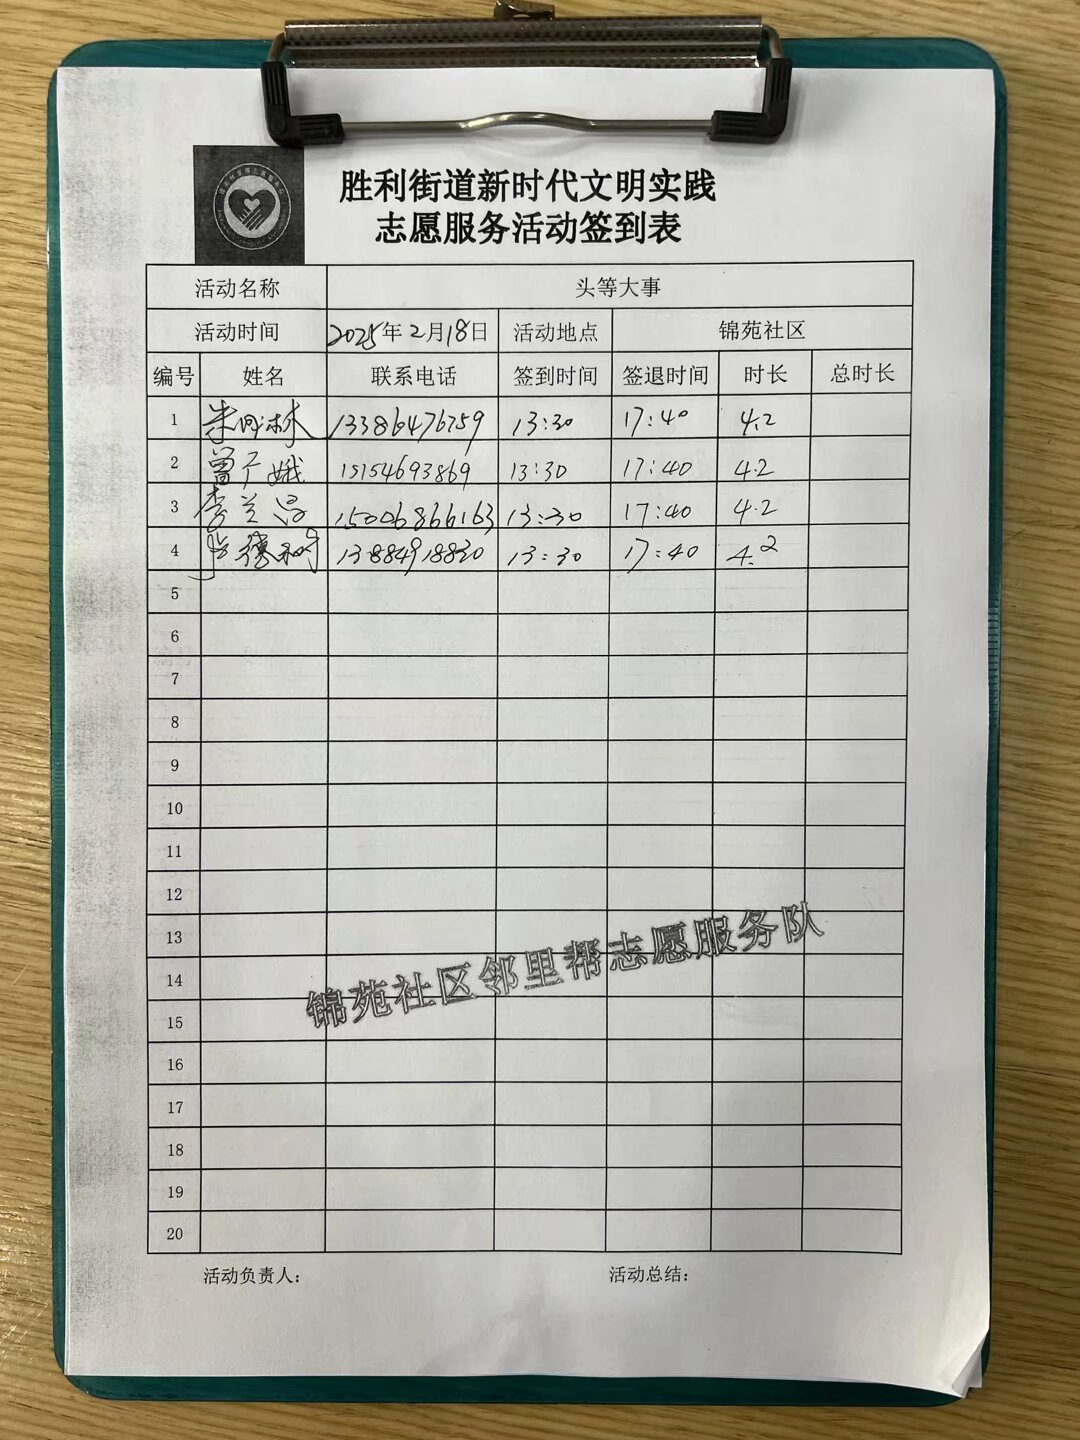 胜利街道新时代文明实践
志愿服务活动签到表
活动名称 头等大事
活动时间 2025年2月18日 活动地点 锦苑社区
编号 姓名 联系电话 签到时间 签退时间 时长 总时长
1 朱 林 13386476759 13:30 17:40 4.2
2 曾广娥 15154693869 13:30 17:40 4.2
3 李兰 15006866163 13:30 17:40 4.2
4 13884918830 13:30 17:40 4.2
5
6
7
8
9
10
11
12
13
14
15
16
17
18
19
20
锦苑社区邻里帮志愿服务队
活动负责人： 活动总结：